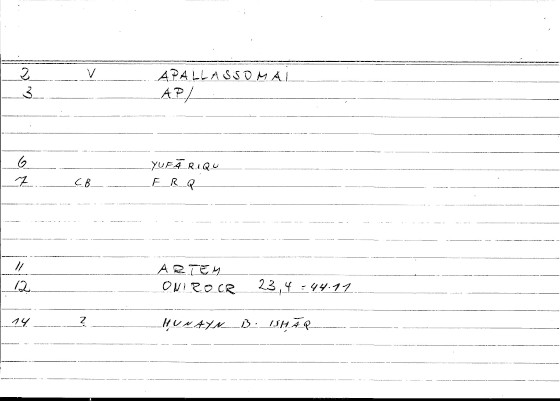 2 V APALLASSOMAI
3 AP/
6 YUFĀRIQU
7 CB F R Q
11 ARTEM
12 ONIROCR 23,4 = 44.11
14 2 ḤUNAYN B. ISḤĀQ